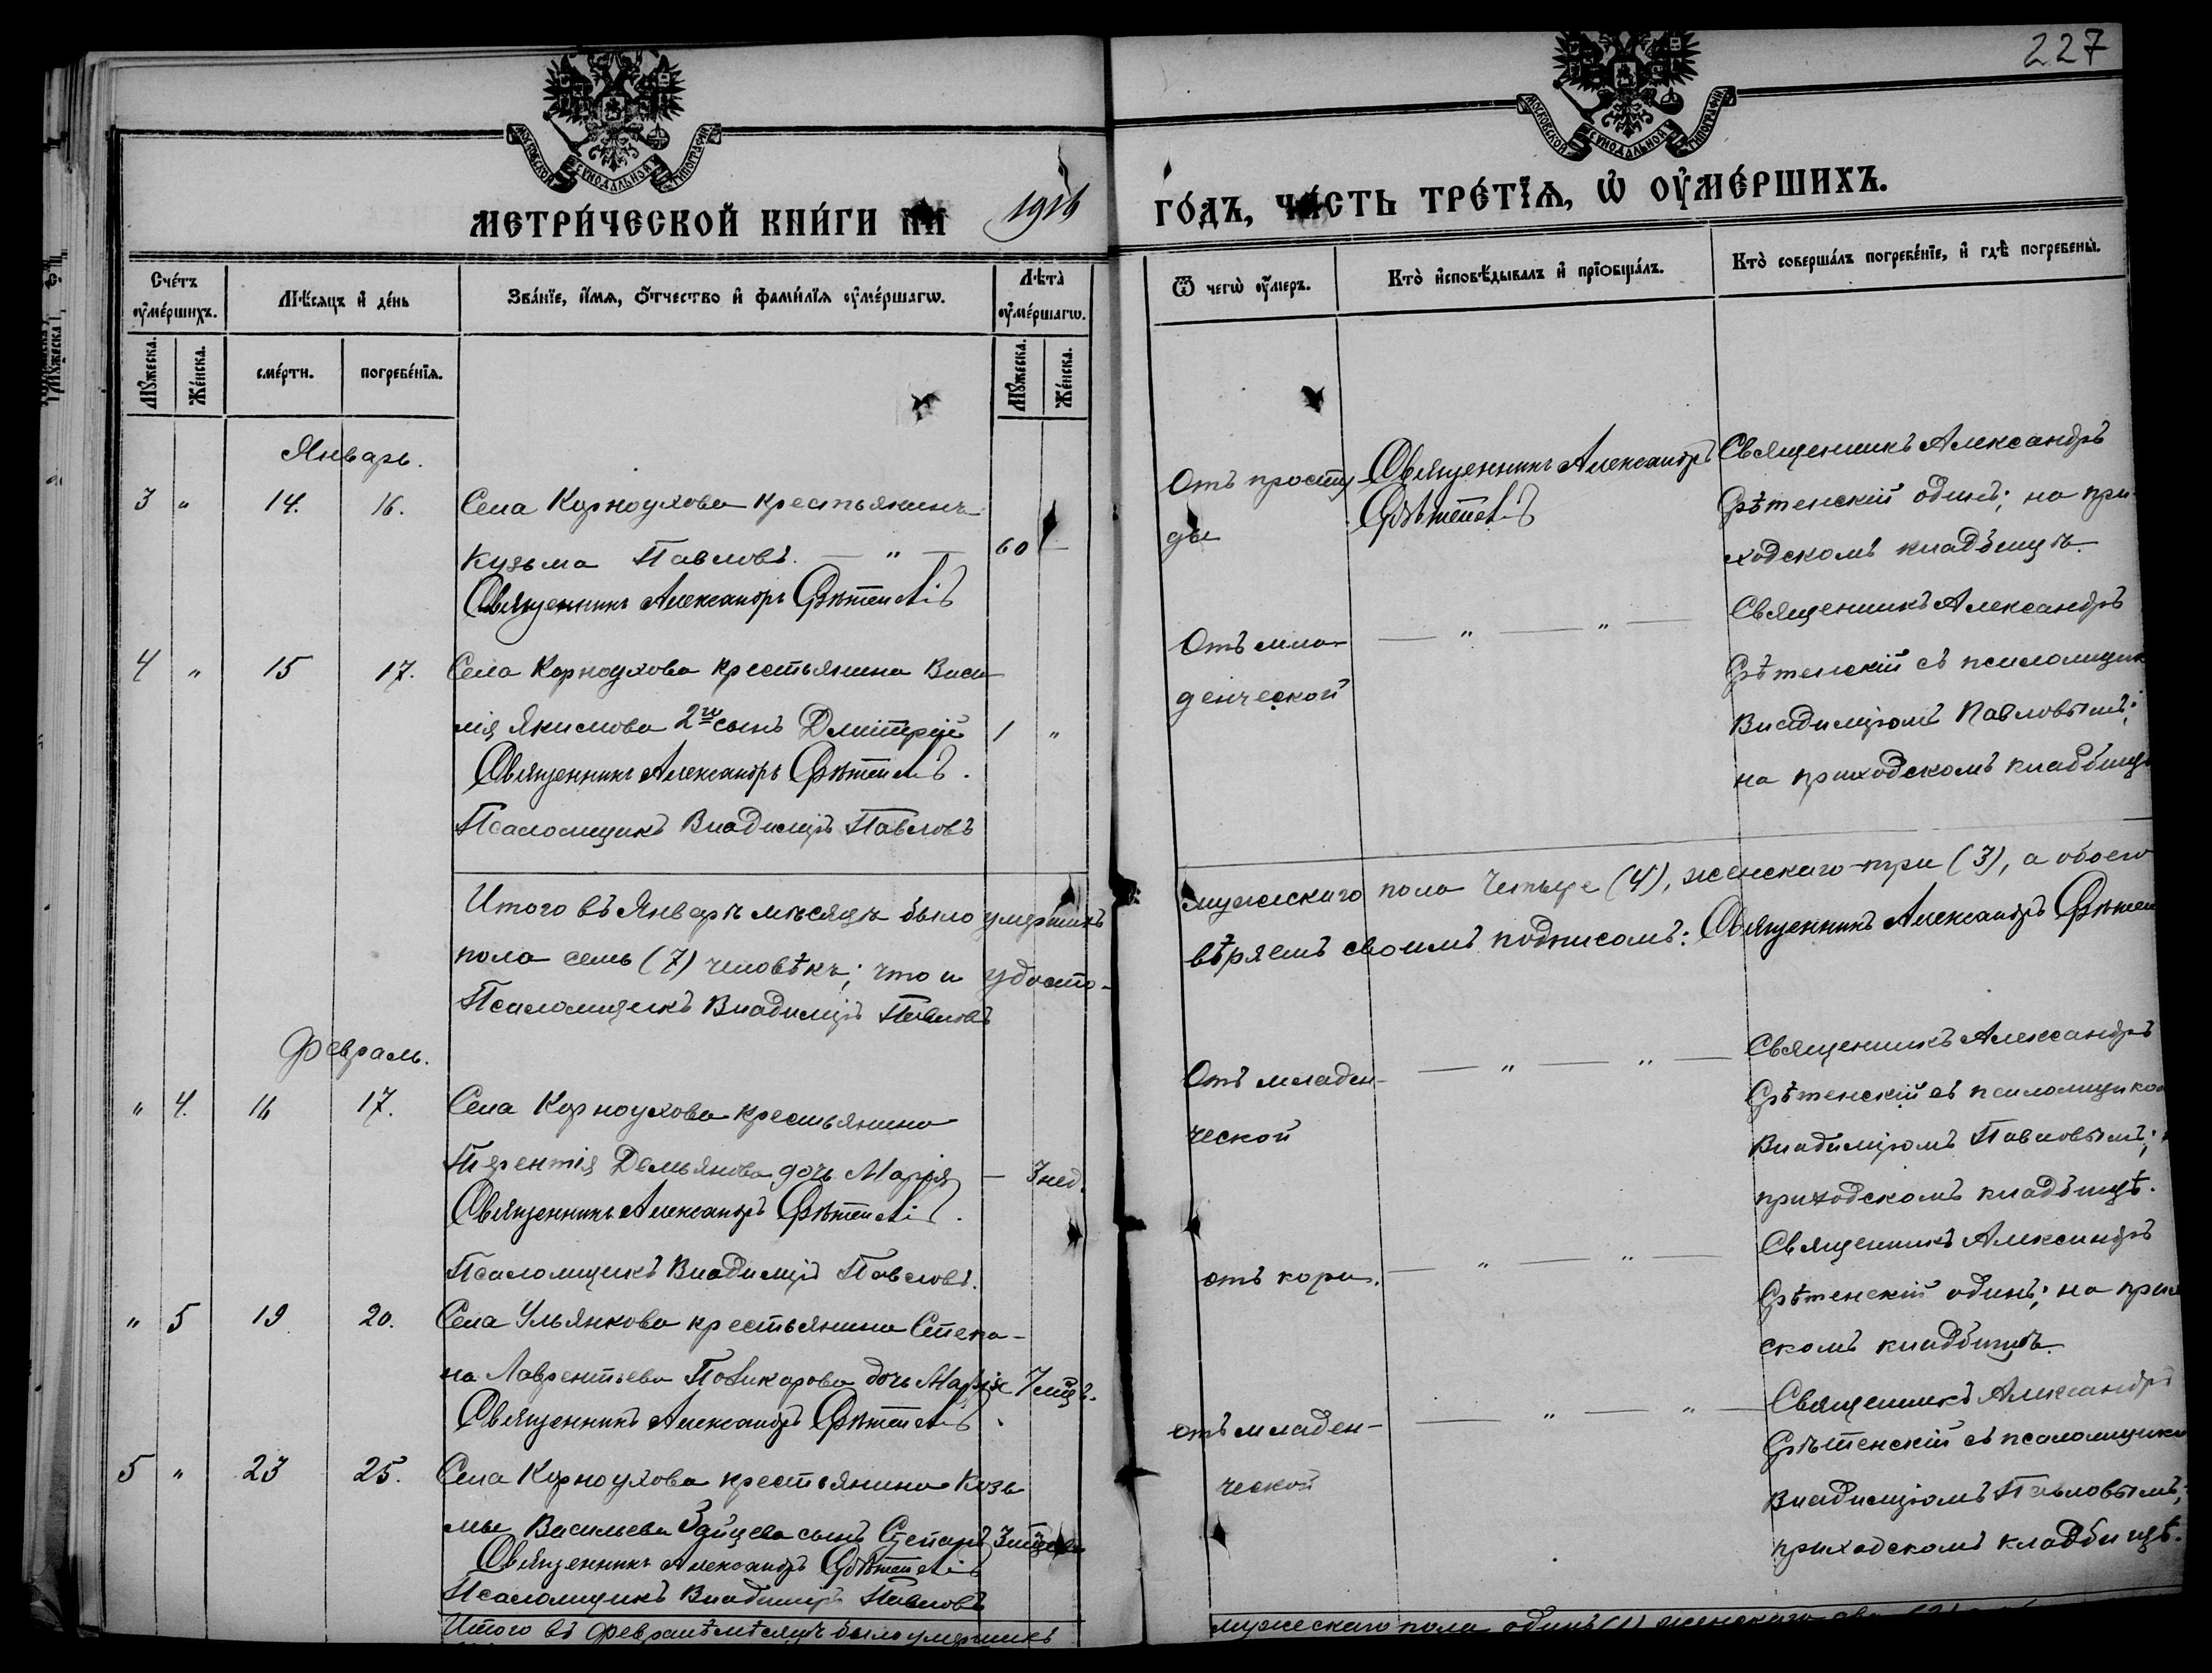 227
МОСКОВСКОЙ СУНОДАЛЬНОЙ ТИПОГРАФІИ
МОСКОВСКОЙ СУНОДАЛЬНОЙ ТИПОГРАФІИ
МЕТРИ́ЧЕСКОЙ КНИ́ГИ НА 1916
ГО́ДЪ, ЧА́СТЬ ТРЕ́ТІѦ, Ѡ ОУМЕ́РШИХЪ.
Сче́тъ оуме́ршихъ.
Мѣ́сяцъ и де́нь
Зва́ніе, и́мя, о́тчество и фами́лія оуме́ршагѡ.
Лѣта̀ оуме́ршагѡ.
Ѿ чегѡ̀ оу́меръ.
Кто̀ исповѣ́дывалъ и пріобща́лъ.
Кто̀ соверша́лъ погребе́ніе, и гдѣ̀ погребены̀.
Му́жеска.
Же́нска.
сме́рти.
погребе́нія.
Му́жеска.
Же́нска.
Январь.
3 " 14. 16. Села Корноухова крестьянинъ
Кузьма Павловъ. — " — 60 —
Священникъ Александръ Срѣтенскій
Отъ просту
ды
Священникъ Александръ
Срѣтенскій
Священникъ Александръ
Срѣтенскій одинъ; на при-
ходскомъ кладбищѣ.
4 " 15 17. Села Корноухова крестьянина Васи-
лія Якимова 2й сынъ Дмитрій 1 "
Священникъ Александръ Срѣтенскій.
Псаломщикъ Владиміръ Павловъ
Отъ мла-
денческой
— " — " —
Священникъ Александръ
Срѣтенскій съ псаломщик
Владиміромъ Павловымъ;
на приходскомъ кладбищѣ
Итого въ Январѣ мѣсяцѣ было умершихъ
мужескаго пола четыре (4), женскаго три (3), а обоего
пола семь (7) человѣкъ; что и удосто-
вѣряемъ своимъ подписомъ: Священникъ Александръ Срѣтен
Псаломщикъ Владиміръ Павловъ
Февраль.
" 4. 16 17. Села Корноухова крестьянина
Терентія Демьянова дочь Марія — 3 нед.
Священникъ Александръ Срѣтенскій.
Псаломщикъ Владиміръ Павловъ.
Отъ младен-
ческой
— " — " —
Священникъ Александръ
Срѣтенскій съ псаломщико
Владиміромъ Павловымъ;
приходскомъ кладбищѣ.
" 5 19 20. Села Ульянкова крестьянина Степа-
на Лаврентьева Поликарова дочь Марія 7 мѣц.
Священникъ Александръ Срѣтенскій.
отъ кори.
— " — " —
Священникъ Александръ
Срѣтенскій одинъ; на прих
скомъ кладбищѣ.
5 " 23 25. Села Корноухова крестьянина Козь
мы Васильева Зайцева сынъ Степанъ
Священникъ Александръ Срѣтенскій
Псаломщикъ Владиміръ Павловъ
отъ младен-
ческой
— " — " —
Священникъ Александръ
Срѣтенскій съ псаломщико
Владиміромъ Павловымъ;
приходскомъ кладбищѣ.
Итого въ Февралѣ мѣсяцѣ было умершихъ
мужескаго пола одинъ (1) женскаго два (2)